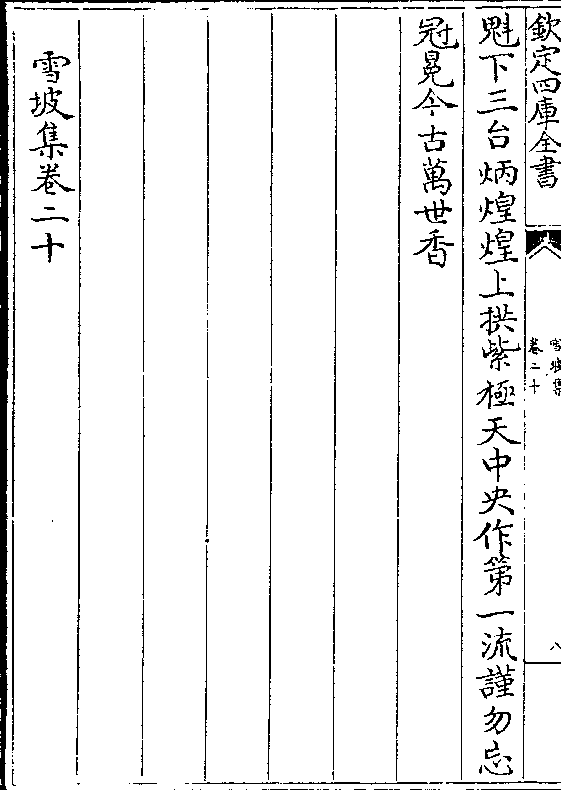 欽定四庫全書
雪坡集
卷二十
八
魁下三台炳煌煌上拱紫極天中央作第一流謹勿忘
冠冕今古萬世香
雪坡集卷二十